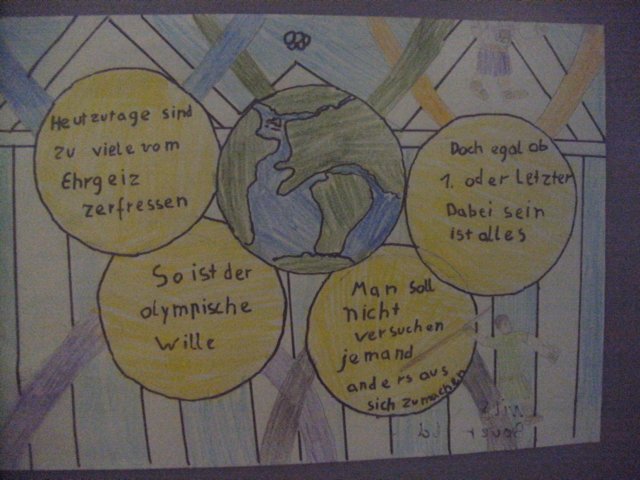 Heutzutage sind
zu viele vom
Ehrgeiz
zerfressen
Doch egal ob
1. oder Letzter
Dabei sein
ist alles
So ist der
olympische
Wille
Man soll
nicht
versuchen
jemand
anders aus
sich zu machen